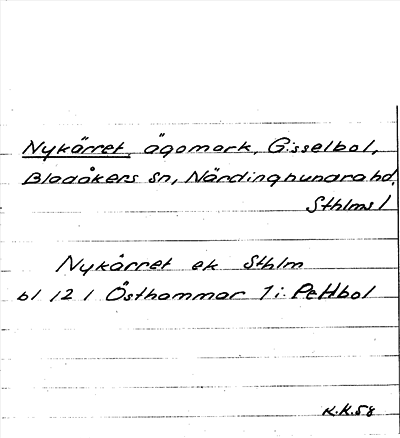 Nykärret, ägomark, Gisselbol,
Bladåkers sn, Närdinghundra hd,
Sthlms l
Nykärret ek Sthlm
bl 121 Östhammar 7i: Pettbol
K.K.58